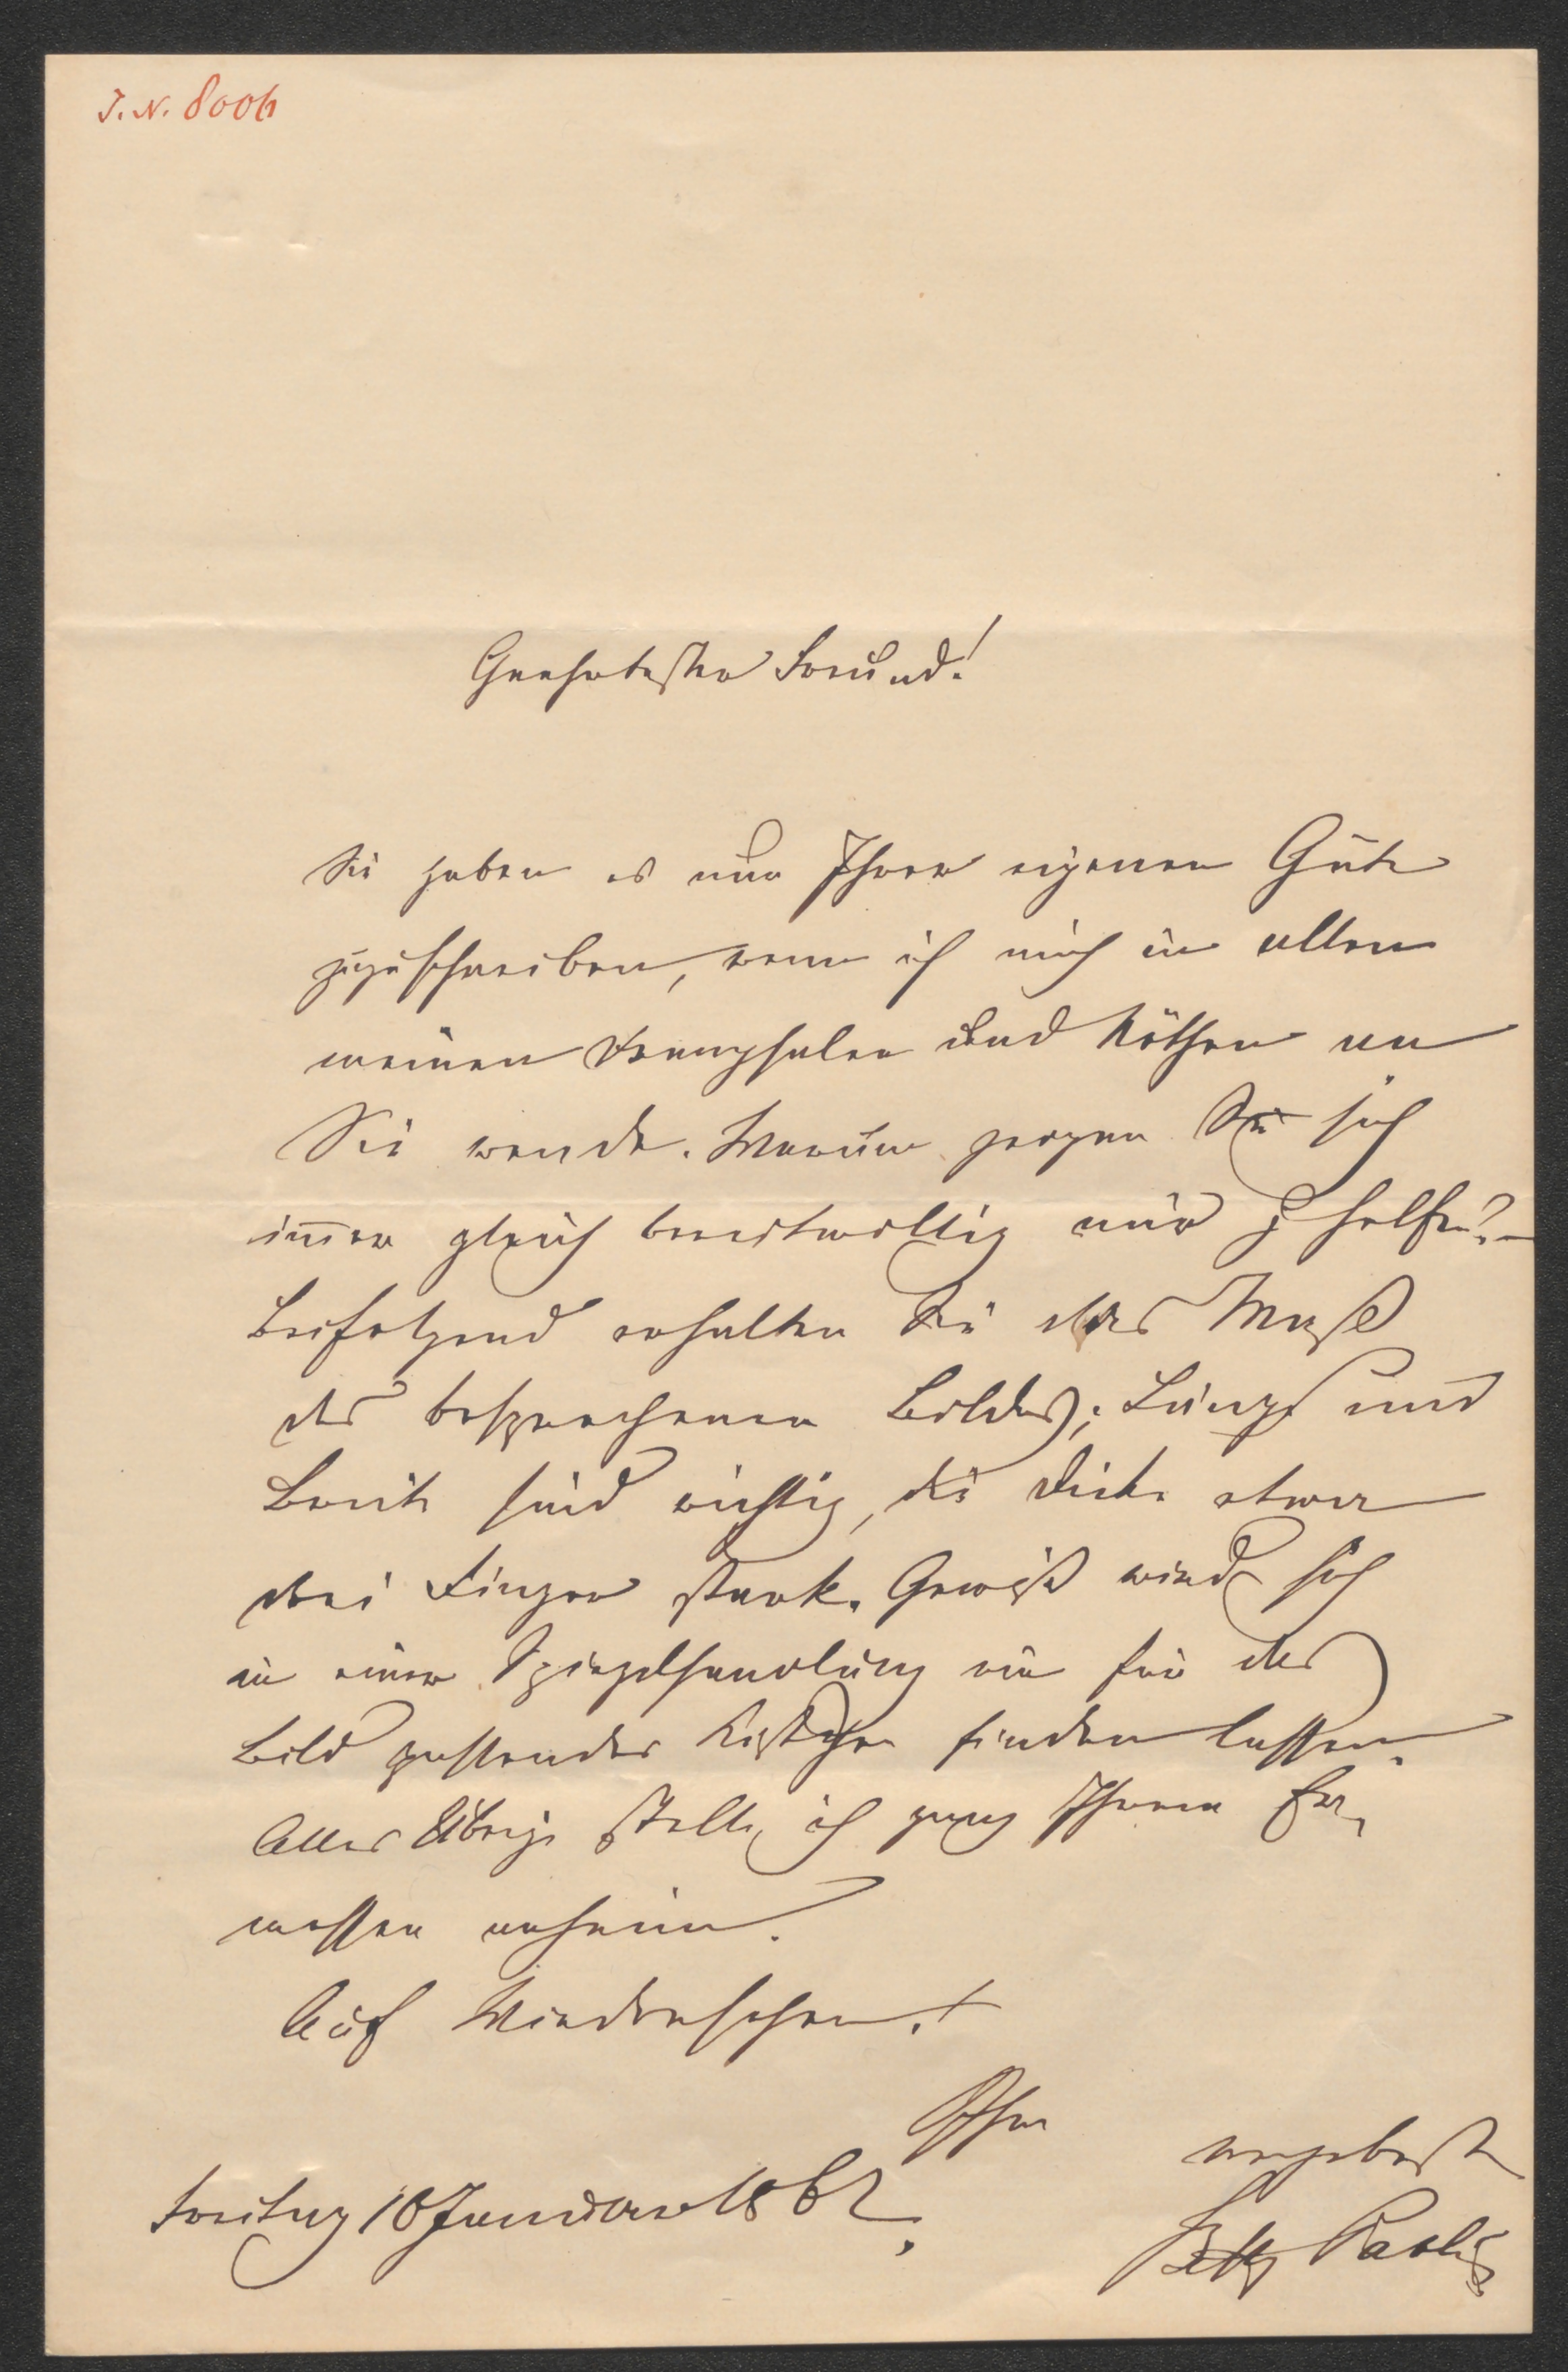 J. N. 8006
Geehrtester Freund!
Sie haben es nur Ihrer eigenen Güte
zuzuschreiben, wenn ich mich in allen
meinen Drangsalen und Nöthen an
Sie wende. Warum zeigen Sie sich
im̄er gleich bereitwillig mir z helfen? –
Beifolgend erhalten Sie das Maß
des besprochenen Bildes; Länge und
Breite sind richtig, die Dicke etwa
drei Finger stark. Gewiß wird sich
in einer Spiegelhandlung ein für das
Bild passendes Kistchen finden lassen.
Alles Übrige stelle ich ganz Ihrem Er-
messen anheim.
Auf Wiedersehen!
Ihre
ergebenste
Freitag 10 Januar 1862.
Betty Paoli